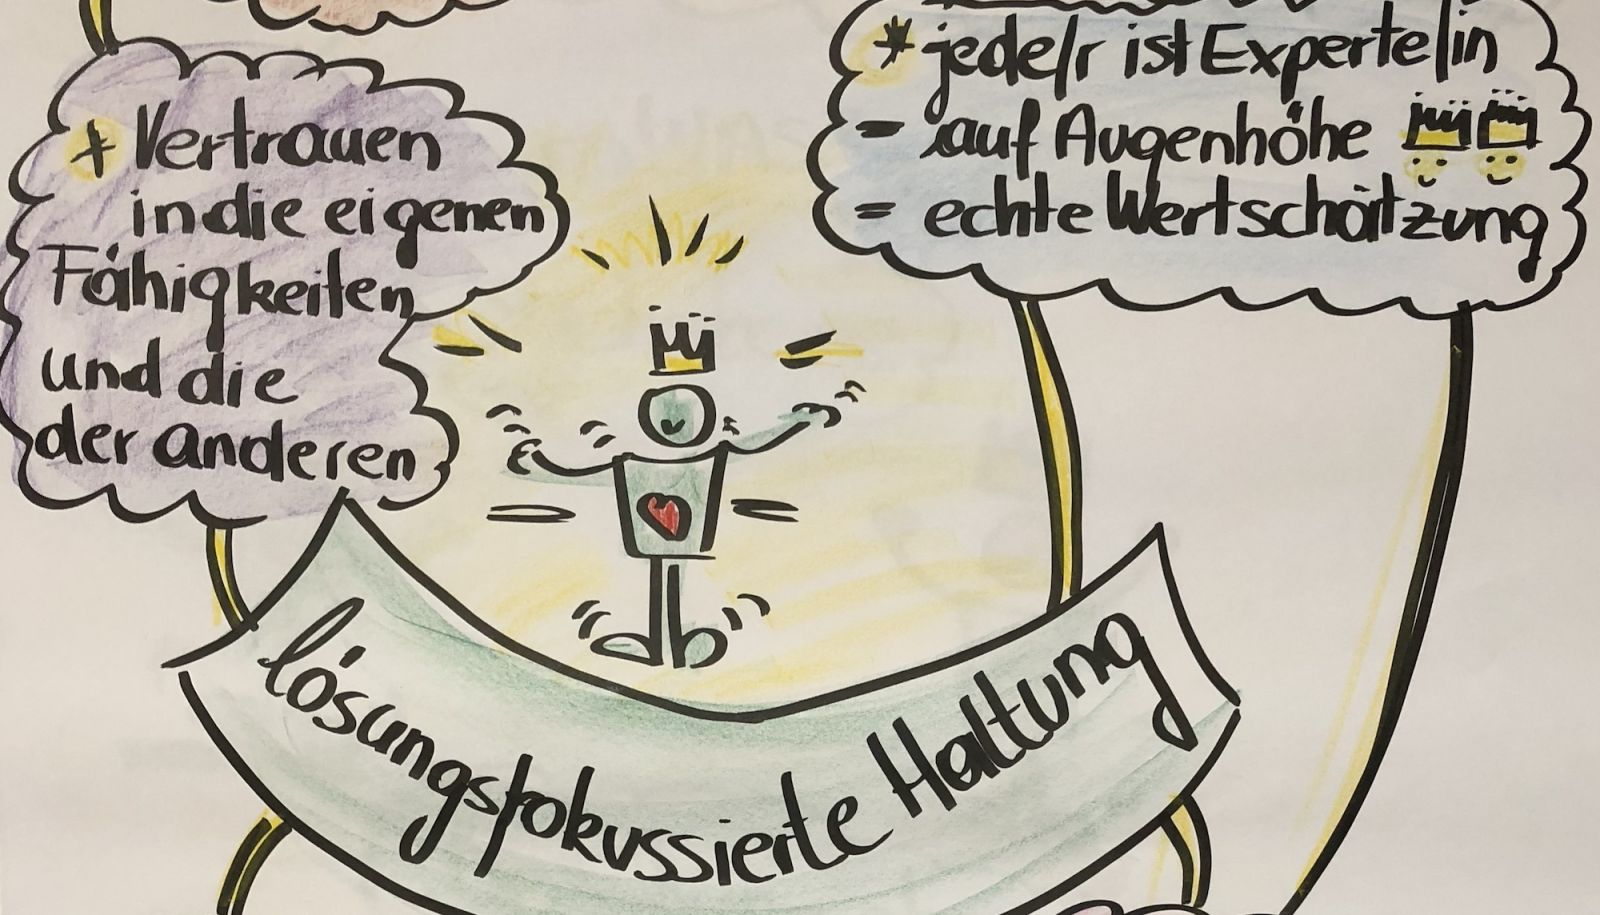 * Vertrauen
in die eigenen
Fähigkeiten
und die
der anderen
* jede/r ist Experte/in
- auf Augenhöhe
= echte Wertschätzung
lösungsfokussierte Haltung